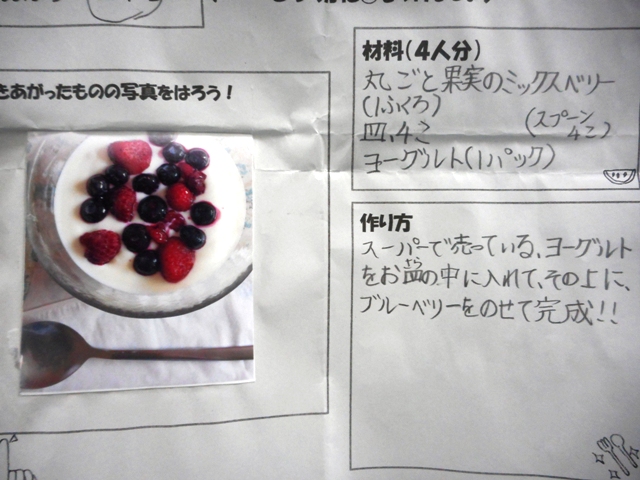 きあがったものの写真をはろう！
材料（4人分）
丸ごと果実のミックスベリー
（1ふくろ）
皿,4こ
（スプーン
4こ）
ヨーグルト（1パック）
作り方
スーパーで売っている、ヨーグルト
をお皿の中に入れて、その上に、
さら
ブルーベリーをのせて完成!!